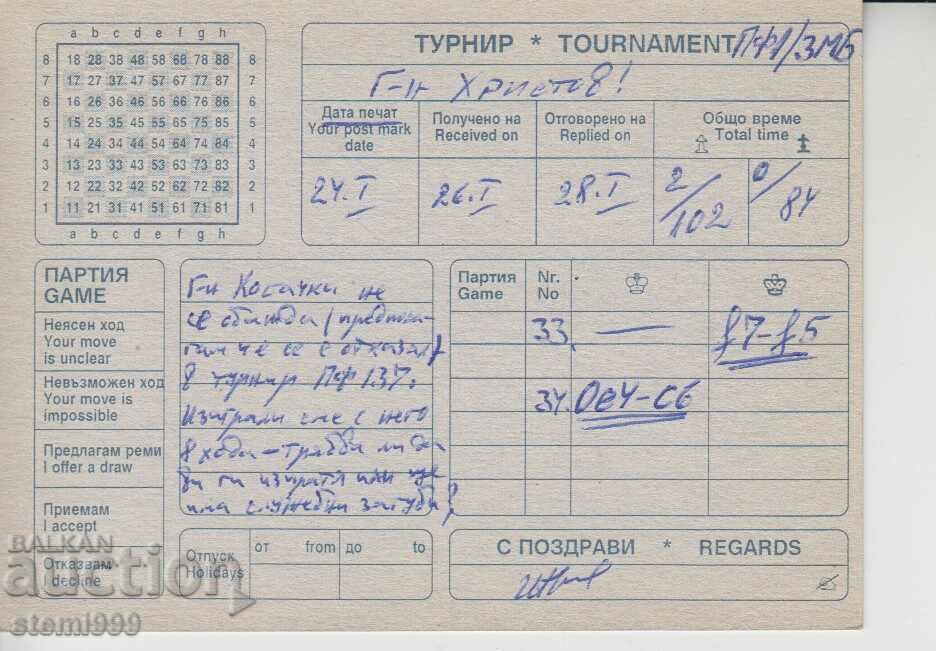 a b c d e f g h
8 18 28 38 48 58 68 78 88 8
7 17 27 37 47 57 67 77 87 7
6 16 26 36 46 56 66 76 86 6
5 15 25 35 45 55 65 75 85 5
4 14 24 34 44 54 64 74 84 4
3 13 23 33 43 53 63 73 83 3
2 12 22 32 42 52 62 72 82 2
1 11 21 31 41 51 61 71 81 1
a b c d e f g h
ТУРНИР * TOURNAMENT ПФ1/3МБ
Г-н Христов!
Дата печат
Your post mark
date
Получено на
Received on
Отговорено на
Replied on
Общо време
Total time
24.I 26.I 28.I 2/102 0/84
ПАРТИЯ
GAME
Неясен ход
Your move
is unclear
Невъзможен ход
Your move is
impossible
Предлагам реми
I offer a draw
Приемам
I accept
Отказвам
I decline
Г-н Косачки не
се обажда (предпола-
гам че се е отказал)
в турнир ПФ 137.
Изиграли сме с него
8 хода – трябва ли да
ви ги изпратя или ще
има служебни загуби?
Партия
Game
Nr.
No
33. — f7-f5
34. Ое4-с6
Отпуск
Holidays
от from до to
С ПОЗДРАВИ * REGARDS
BALKAN
auction
steml999